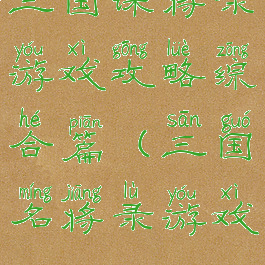 三国 将录
yóu xì gōng lüè zōng
游戏攻略综
hé piān sān guó
合篇(三国
míng jiàng lù yóu xì
名将录游戏